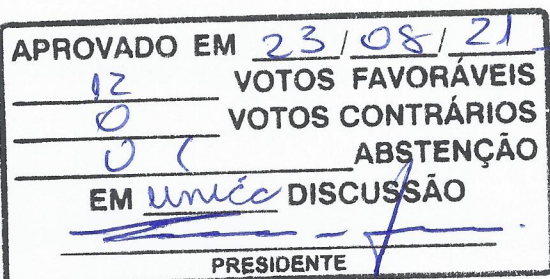 APROVADO EM 23/08/21
12 VOTOS FAVORÁVEIS
0 VOTOS CONTRÁRIOS
01 ABSTENÇÃO
EM única DISCUSSÃO
PRESIDENTE